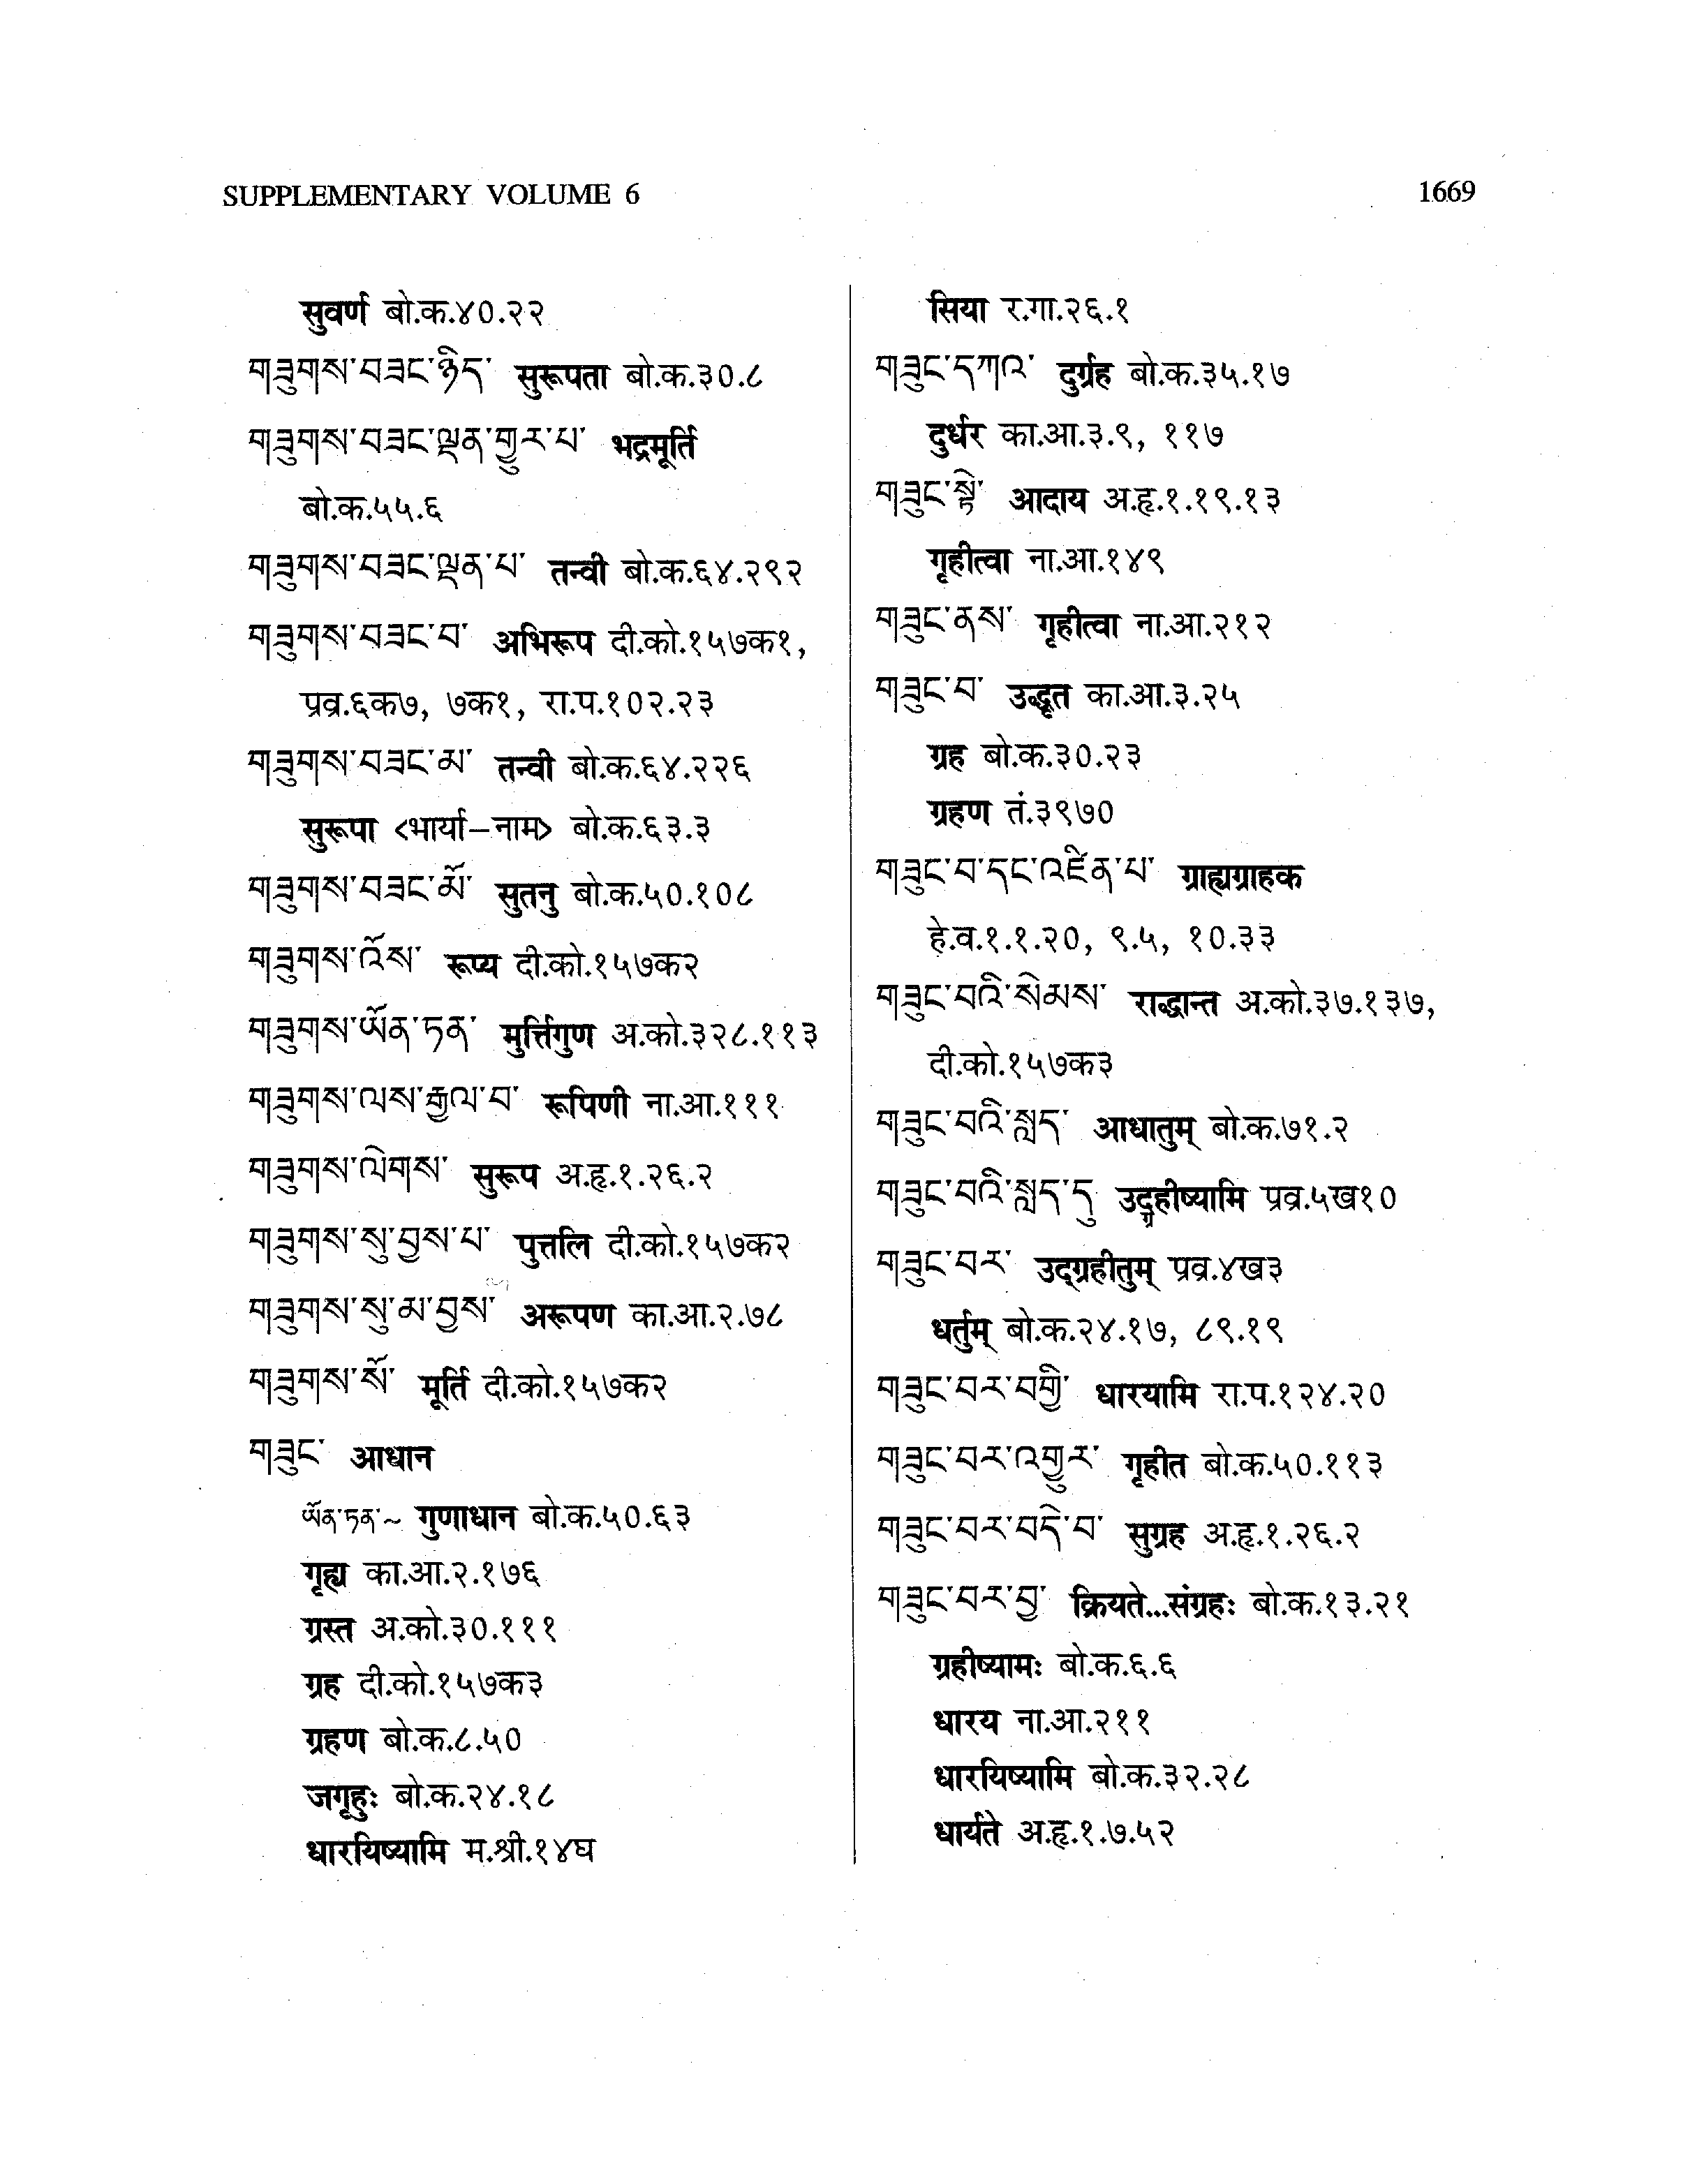 SUPPLEMENTARY VOLUME 6
1669
सुवर्ण बो.क.४०.२२
གཟུགས་བཟང་ཉིད་ सुरूपता बो.क.३०.८
གཟུགས་བཟང་ལྡན་གྱུར་པ་ भद्रमूर्ति
बो.क.५५.६
གཟུགས་བཟང་ལྡན་པ་ तन्वी बो.क.६४.२९२
གཟུགས་བཟང་བ་ अभिरूप दी.को.१५७क१,
प्रव्र.६क७, ७क१, रा.प.१०२.२३
གཟུགས་བཟང་མ་ तन्वी बो.क.६४.२२६
सुरूपा <भार्या-नाम> बो.क.६३.३
གཟུགས་བཟང་མོ་ सुतनु बो.क.५०.१०८
གཟུགས་འོས་ रूप्य दी.को.१५७क२
གཟུགས་ཡོན་ཏན་ मुर्त्तिगुण अ.को.३२८.११३
གཟུགས་ལས་རྒྱལ་བ་ रूपिणी ना.आ.१११
གཟུགས་ལེགས་ सुरूप अ.हृ.१.२६.२
གཟུགས་སུ་བྱས་པ་ पुत्तलि दी.को.१५७क२
གཟུགས་སུ་མ་བྱས་ अरूपण का.आ.२.७८
གཟུགས་སོ་ मूर्ति दी.को.१५७क२
གཟུང་ आधान
ཡོན་ཏན་~ गुणाधान बो.क.५०.६३
गृह्य का.आ.२.१७६
ग्रस्त अ.को.३०.१११
ग्रह दी.को.१५७क३
ग्रहण बो.क.८.५०
जगृहुः बो.क.२४.१८
धारयिष्यामि म.श्री.१४घ
सिया र.गा.२६.१
གཟུང་དཀའ་ दुर्ग्रह बो.क.३५.१७
दुर्धर का.आ.३.९, ११७
གཟུང་སྟེ་ आदाय अ.हृ.१.१९.१३
गृहीत्वा ना.आ.१४९
གཟུང་ནས་ गृहीत्वा ना.आ.२१२
གཟུང་བ་ उद्धृत का.आ.३.२५
ग्रह बो.क.३०.२३
ग्रहण तं.३९७०
གཟུང་བ་དང་འཛིན་པ་ ग्राह्यग्राहक
हे.व.१.१.२०, ९.५, १०.३३
གཟུང་བའི་སེམས་ राद्धान्त अ.को.३७.१३७,
दी.को.१५७क३
གཟུང་བའི་སླད་ आधातुम् बो.क.७१.२
གཟུང་བའི་སླད་དུ་ उद्ग्रहीष्यामि प्रव्र.५ख१०
གཟུང་བར་ उद्‌ग्रहीतुम् प्रव्र.४ख३
धर्तुम् बो.क.२४.१७, ८९.१९
གཟུང་བར་བགྱི་ धारयामि रा.प.१२४.२०
གཟུང་བར་འགྱུར་ गृहीत बो.क.५०.११३
གཟུང་བར་བདེ་བ་ सुग्रह अ.हृ.१.२६.२
གཟུང་བར་བྱ་ क्रियते...संग्रहः बो.क.१३.२१
ग्रहीष्यामः बो.क.६.६
धारय ना.आ.२११
धारयिष्यामि बो.क.३२.२८
धार्यते अ.हृ.१.७.५२